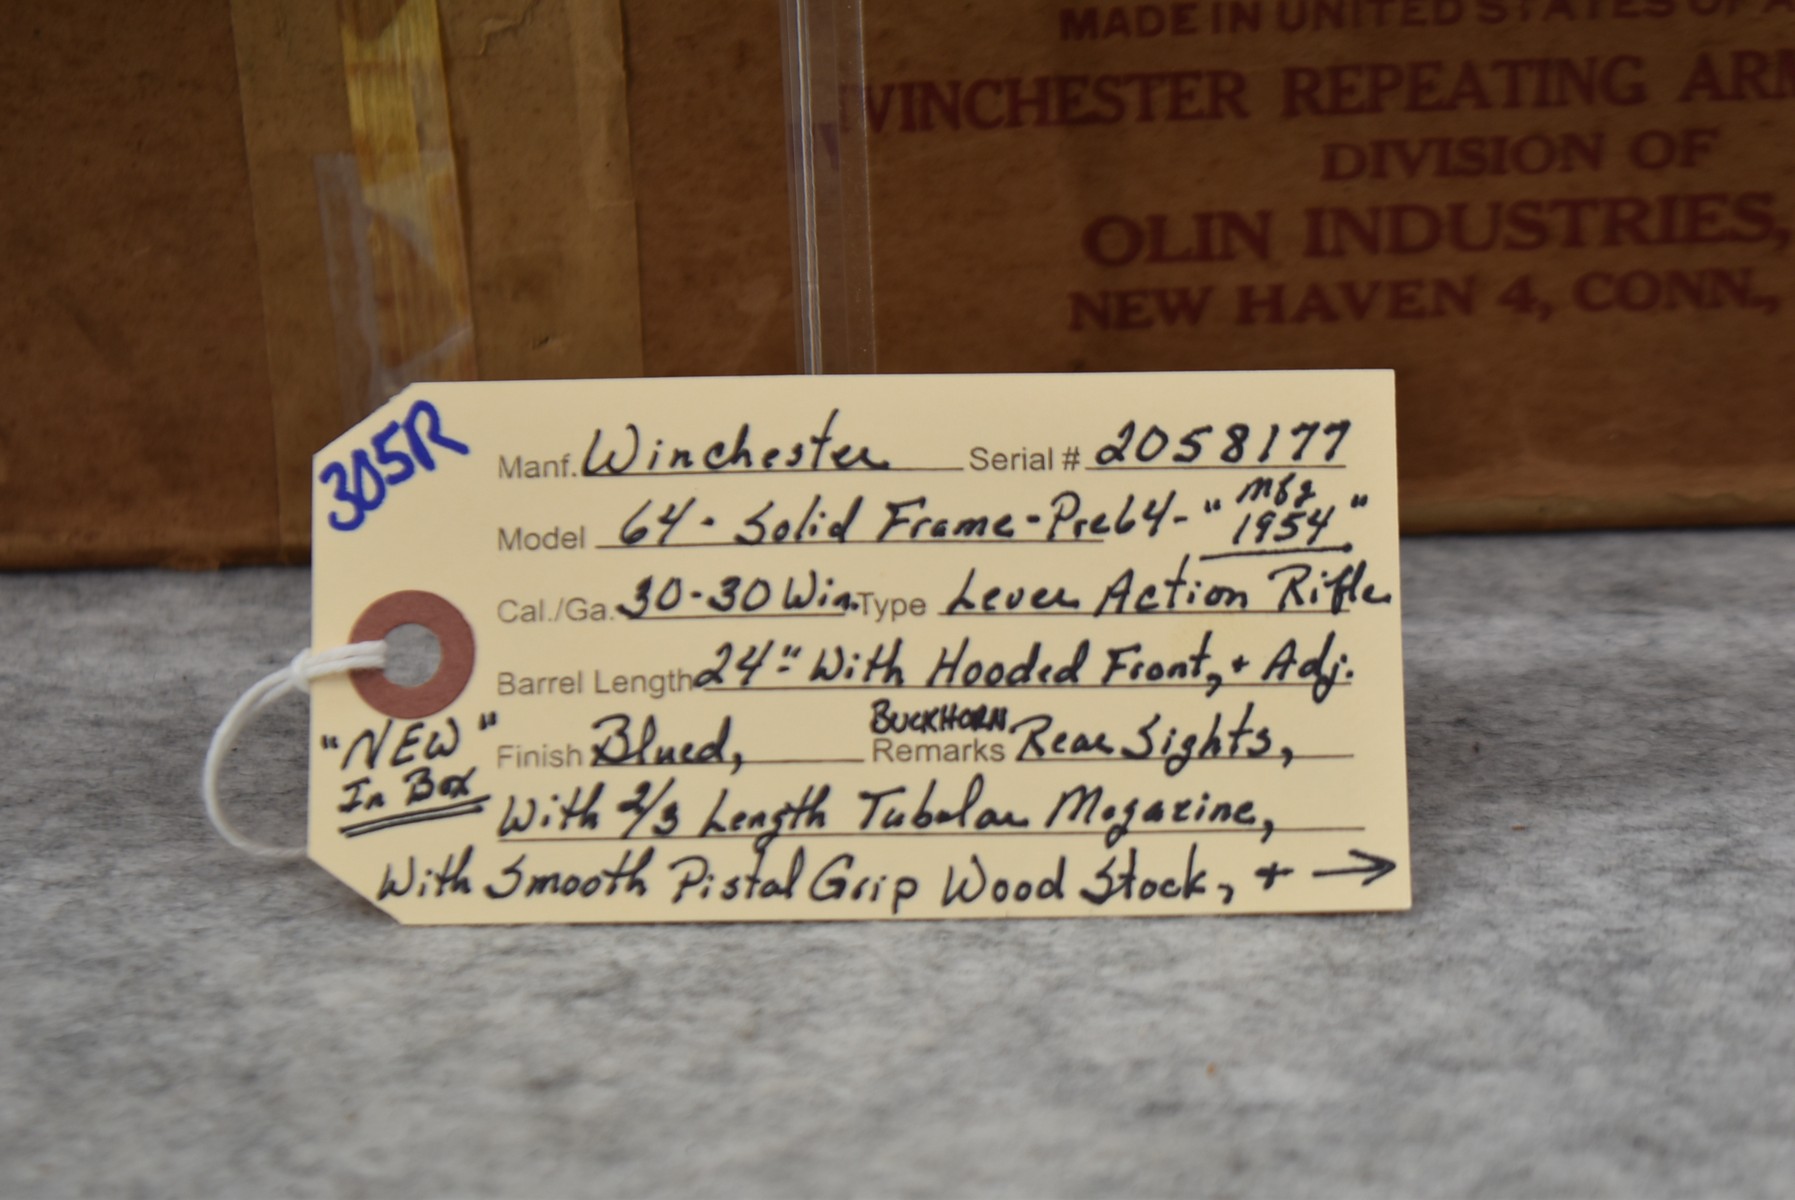 MADE IN UNITED STATES OF A
WINCHESTER REPEATING ARM
DIVISION OF
OLIN INDUSTRIES,
NEW HAVEN 4, CONN.,
305R
Manf. Winchester Serial # 2058177
Model 64 - Solid Frame - Pre64 - "Mfg 1954"
Cal./Ga. 30-30 Win. Type Lever Action Rifle
Barrel Length 24" With Hooded Front, + Adj.
"NEW" In Box
Finish Blued, BUCKHORN Remarks Rear Sights,
With 2/3 Length Tubular Magazine,
With Smooth Pistal Grip Wood Stock, + →